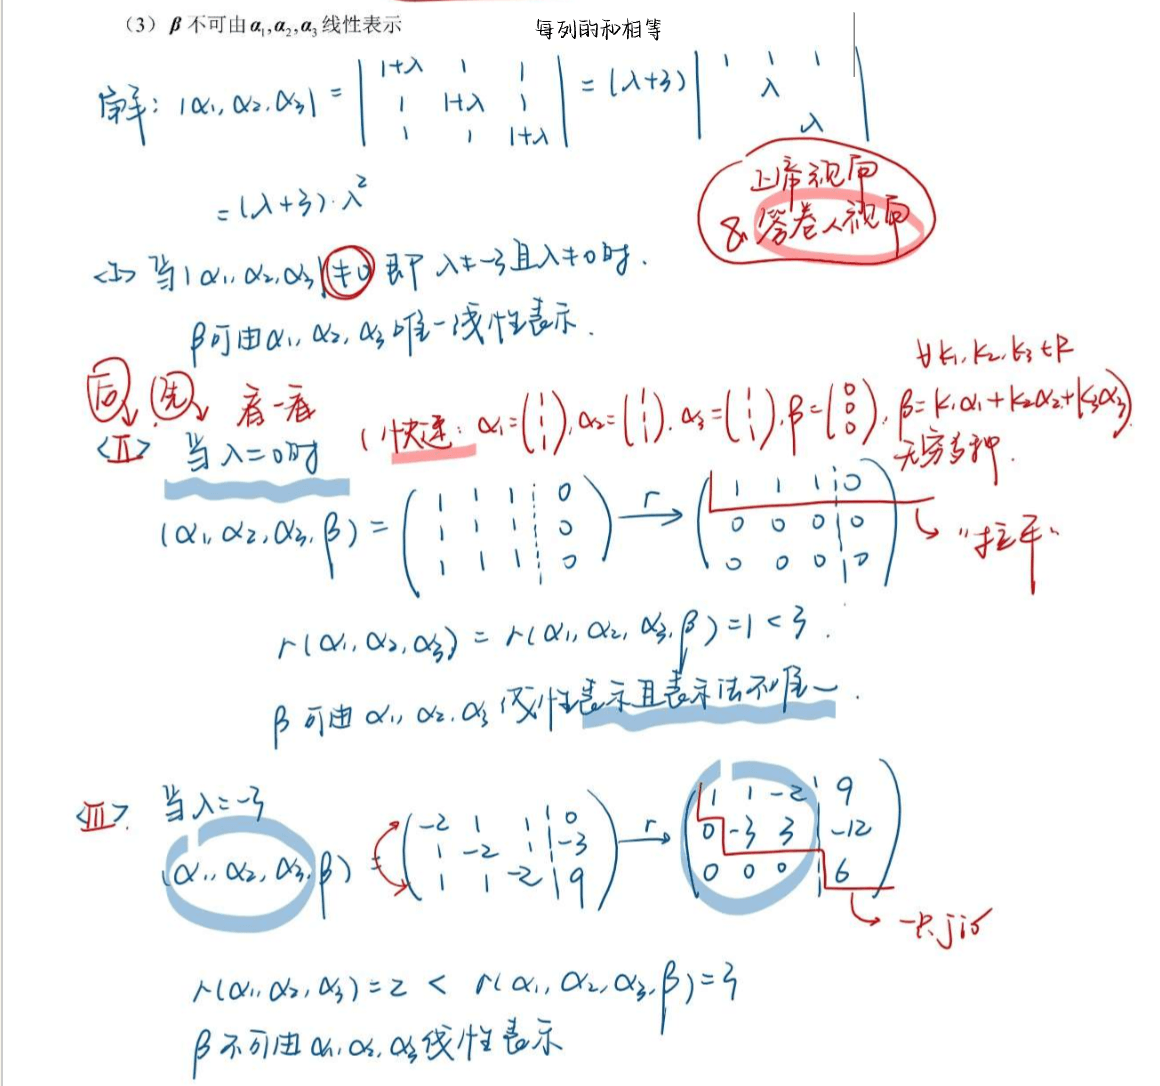 （3）β 不可由α₁,α₂,α₃线性表示
每列的和相等
解: |α₁, α₂, α₃| = | 1+λ 1 1 | = (λ+3) | 1 1 1 |
| 1 1+λ 1 | | λ |
| 1 1 1+λ | | λ |
= (λ+3)·λ²
上帝视角
& 答卷人视角
<I> 当|α₁, α₂, α₃|≠0 即 λ≠-3且λ≠0时.
β可由α₁, α₂, α₃唯一线性表示.
∀k₁,k₂,k₃∈R
先 看一看
(快速: α₁=(1 1 1), α₂=(1 1 1), α₃=(1 1 1), β=(0 0 0), β=k₁α₁+k₂α₂+k₃α₃)
无穷多种.
<II> 当λ=0时
(α₁, α₂, α₃, β) = ( 1 1 1 0 ) r→ ( 1 1 1 0 )
( 1 1 1 0 ) ( 0 0 0 0 )
( 1 1 1 0 ) ( 0 0 0 0 )
r(α₁, α₂, α₃) = r(α₁, α₂, α₃, β) = 1 < 3.
β可由α₁, α₂, α₃线性表示且表示法不唯一.
<III>. 当λ=-3
(α₁, α₂, α₃, β) = ( -2 1 1 0 ) r→ ( 1 1 -2 9 )
( 1 -2 1 -3 ) ( 0 -3 3 -12 )
( 1 1 -2 9 ) ( 0 0 0 6 )
r(α₁, α₂, α₃) = 2 < r(α₁, α₂, α₃, β) = 3
β不可由α₁, α₂, α₃线性表示